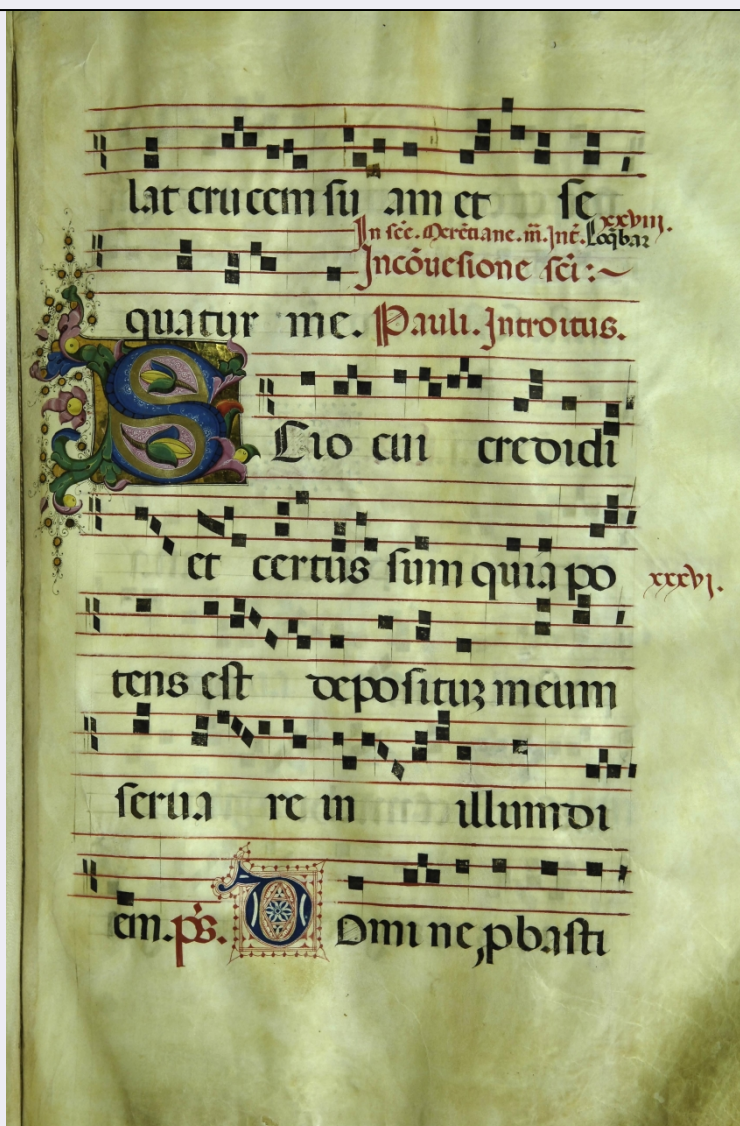 lat crucem su am et se
xxviii.
In scē. Merētiane. m̄. Int̄. Loq̄bar
In cōuesione sci :~
quatur me. Pauli. Introitus.
S Cio cui credidi
et certus sum quia po
xxxvj.
tens est deposituʒ meum
serua re in illum di
em. ps. D Omi ne, pbasti